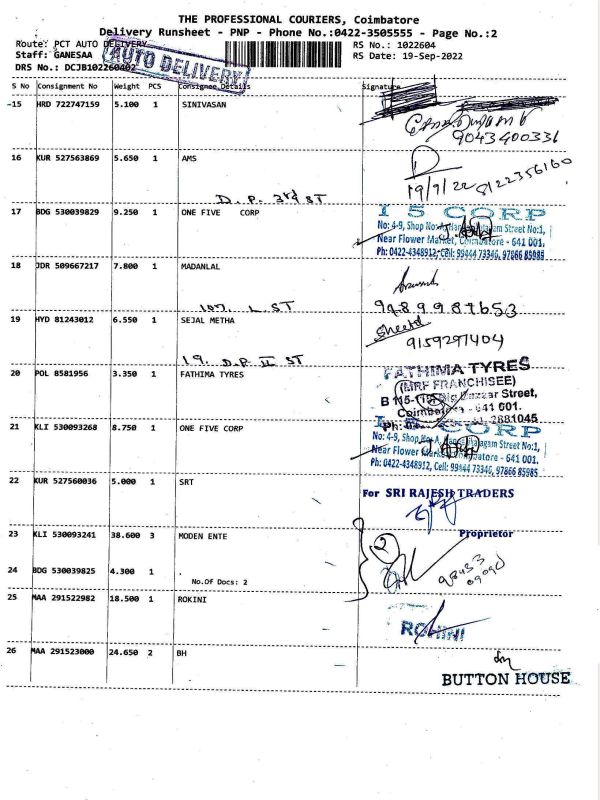 THE PROFESSIONAL COURIERS, Coimbatore
Delivery Runsheet - PNP - Phone No.:0422-3505555 - Page No.:2
Route: PCT AUTO DELIVERY
RS No.: 1022604
Staff: GANESAA
RS Date: 19-Sep-2022
DRS No.: DCJB102260402
AUTO DELIVERY
S No Consignment No Weight PCS Consignee Details Signature
15 HRD 722747159 5.100 1 SINIVASAN
9043400331
16 KUR 527563869 5.650 1 AMS
19/9/22 8122356160
D.P. 3rd ST
17 BDG 530039829 9.250 1 ONE FIVE CORP
I 5 CORP
No: 4-9, Shop No: Street No:1,
Near Flower Market, Coimbatore - 641 001.
Ph: 0422-4348912, Cell: 99444 73346, 97866 85985
18 JDR 509667217 7.800 1 MADANLAL
107. L. ST
9489987653
19 HYD 81243012 6.550 1 SEJAL METHA
Sheetal
9159297404
19. D.P. II ST
20 POL 8581956 3.350 1 FATHIMA TYRES
FATHIMA TYRES
(MRF FRANCHISEE)
Big Bazzar Street,
Coimbatore - 641 001.
Ph: 2381045
21 KLI 530093268 8.750 1 ONE FIVE CORP
I 5 CORP
No: 4-9, Shop No: Street No:1,
Near Flower Market, Coimbatore - 641 001.
Ph: 0422-4348912, Cell: 99444 73346, 97866 85985
22 KUR 527560036 5.000 1 SRT
For SRI RAJESH TRADERS
Proprietor
23 KLI 530093241 38.600 3 MODEN ENTE
2
24 BDG 530039825 4.300 1
No.Of Docs: 2
25 MAA 291522982 18.500 1 ROKINI
ROHINI
26 MAA 291523000 24.650 2 BH
BUTTON HOUSE